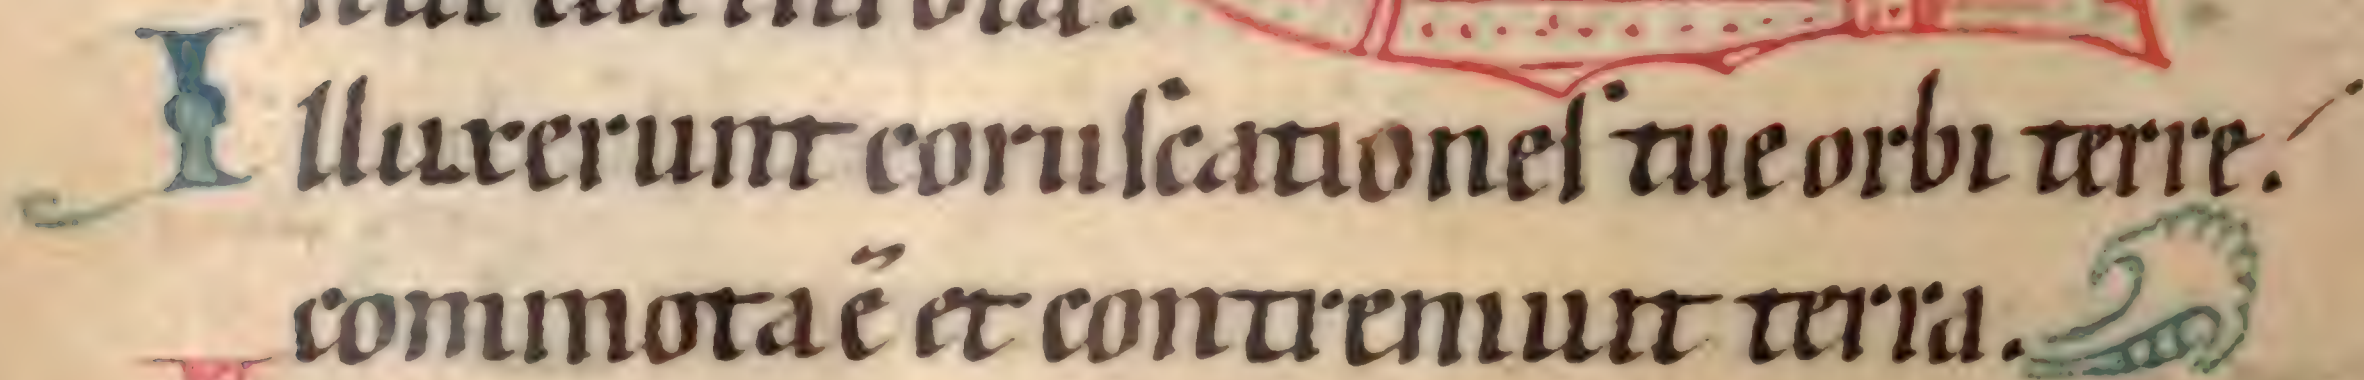 Illuxerunt coruſcationeſ tue orbi terre.
commota ē et contremuit terra.